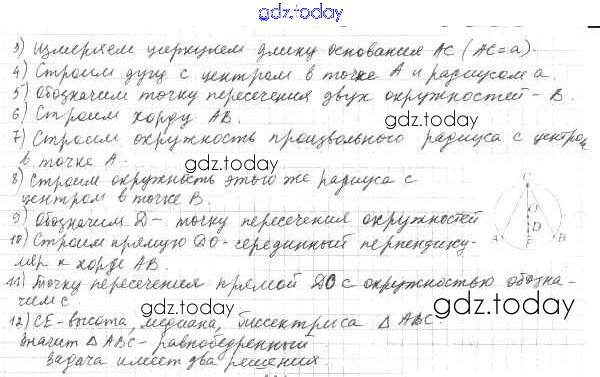 gdz.today
3) Измеряем циркулем длину основания AC (AC=a).
4) Строим дугу с центром в точке A и радиусом a.
5) Обозначим точку пересечения двух окружностей – B.
6) Строим хорду AB.
gdz.today
7) Строим окружность произвольного радиуса с центром
в точке A.
gdz.today
8) Строим окружность этого же радиуса с
центром в точке B.
9) Обозначим D – точку пересечения окружностей
gdz.today
10) Строим прямую DO – серединный перпендику-
ляр к хорде AB.
C
O
D
A
E
B
11) Точку пересечения прямой DO с окружностью обозна-
чим C
gdz.today
gdz.today
12) CE – высота, медиана, биссектриса △ ABC.
Значит △ ABC – равнобедренный
Задача имеет два решения.